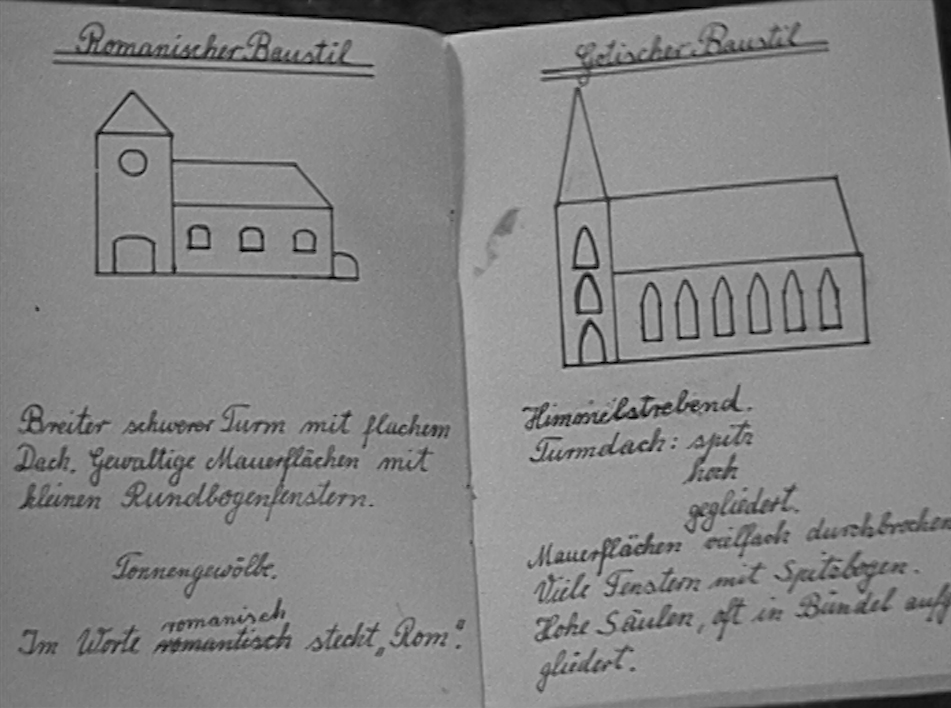 Romanischer Baustil
Breiter schwerer Turm mit flachem
Dach. Gewaltige Mauerflächen mit
kleinen Rundbogenfenstern.
Tonnengewölbe.
romanisch
Im Worte romantisch steckt „Rom“.
Gotischer Baustil
Himmelstrebend.
Turmdach: spitz
hoch
gegliedert.
Mauerflächen vielfach durchbrochen
Viele Fenstern mit Spitzbogen.
Hohe Säulen, oft in Bündel aufge
gliedert.